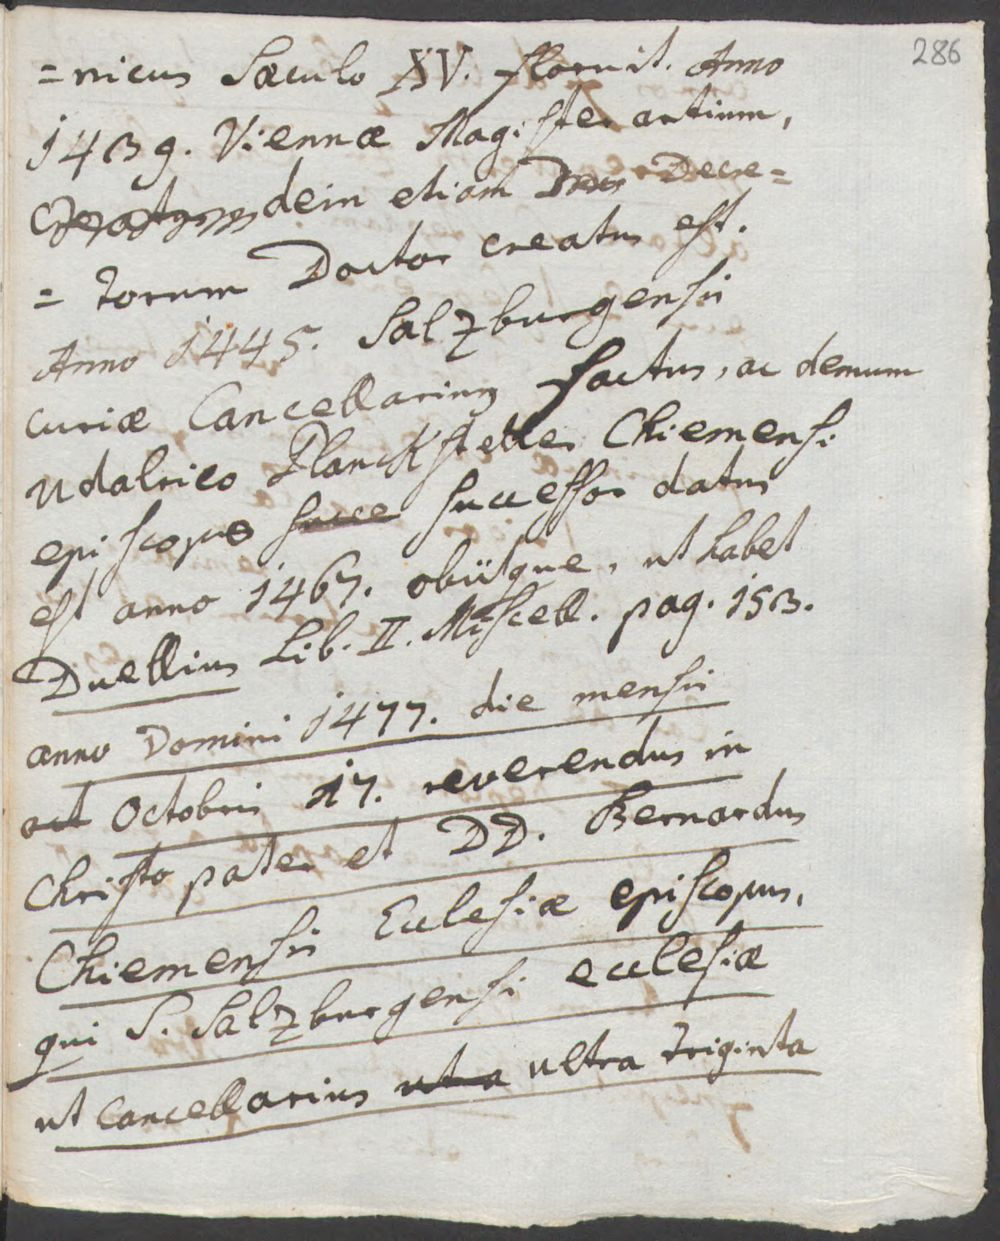 286
=nicus Sæculo XV. floruit. Anno
1439. Viennæ Magister artium,
dein etiam Decre=
=torum Doctor creatus est.
Anno 1445. Salzburgensis
curiæ Cancellarius factus, ac demum
Udalrico Planckstetter Chiemensi
episcopo succe successor datus
est anno 1467. obiitque, ut habet
Duellius Lib. II. Miscell. pag. 153.
anno Domini 1477. die mensis
oct Octobris 17. reverendus in
Christo pater et DD. Bernardus
Chiemensis Ecclesiæ episcopus,
qui S. Salzburgensi ecclesiæ
ut Cancellarius utra ultra triginta